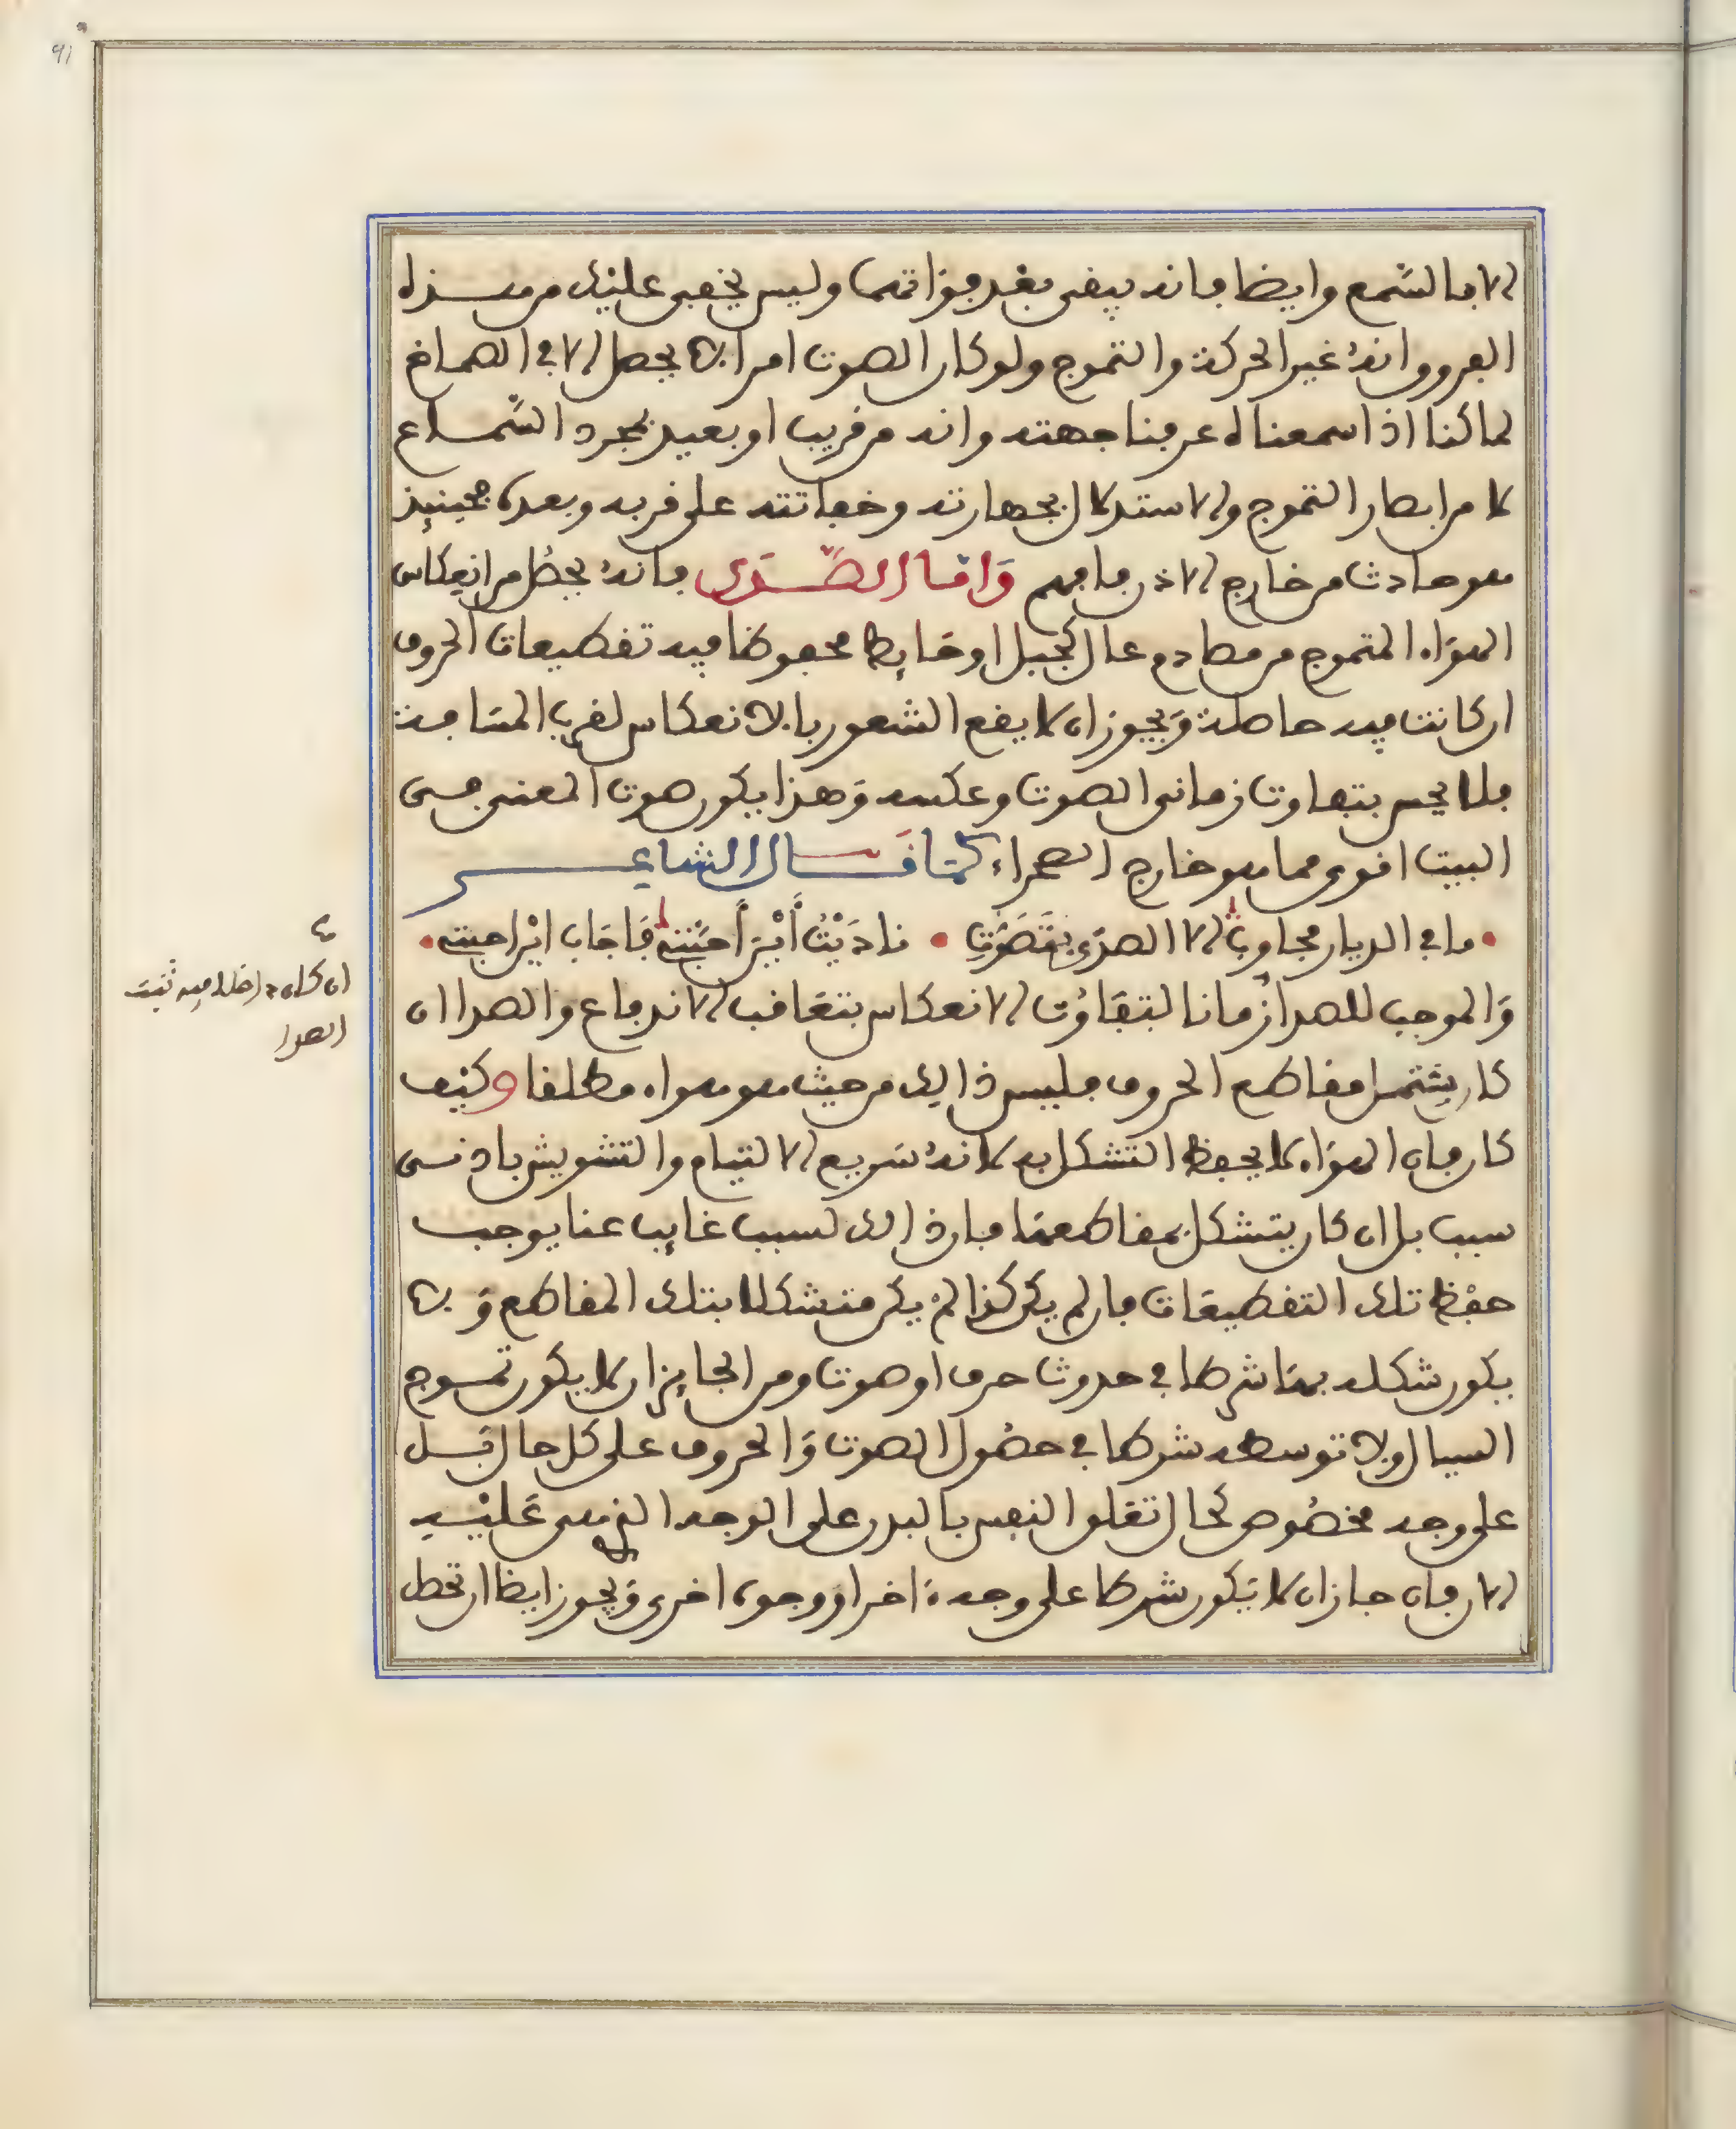 الا بالسَّمع وايضا فانه يبقى بعد فواتهما وليس يخفى عليْك من هذه
الفروق انهُ غير الحركة والتموج ولو كان الصوت امرا لا يحصل الا في الصماخ
لما كنا اذا سمعناه عرفنا جهته وانه من قريب او بعيد بمجرد السَّماع
لا من ابصار التموج والاستدلال بجهارته وخفاتته على قربه وبعده فحينيذ
هو حادث من خارج الاذن فافهم وَامّا الصَّدَى فانهُ يحصُل من انعِكاس
الهوَاء المتموج من مصادم عال كجبل او حَايط محفوظا فيه تقطيعات الحروف
ان كانت فيه حاصلة وَيجوز ان لا يقع الشعور بالانعكاس لقرب المسَافة
فلا يحس بتفاوت زماني الصوت وعكسه وَهذا يكون صوت المغني في
البيت اقوى مما هو خارج الصحراء كمَا قَال الشاعر
• ما في الديار مجاوبٌ الا الصدَى بتَصَوُّتِ • نادَيْتُ أَيْنَ أَحبَّتي فَاجَاب ايْن احبتي •
وَالموجب للصدا زمانا لتفَاوُت الانعكاس بتعَاقب الاندفاع والصدا ان
كان يشتمل مقاطع الحروف فليس ذالك من حيث هو هواء مطلقا وكيْف
كان فان الهوَاء لا يحفظ التشكل به لانهُ سَريع الالتيام والتشويش بادنى
سبب بل ان كان يتشكل بمقاطعهَا فان ذالك لسبب غايب عنا يوجب
حفْظ تلك التقطيعَات فان لم يكن كذا لمْ يكن متشكلا بتلك المقاطع وَلا
يكون شكله بهَا شرطا في حدوث حرف او صوت ومن الجايز ان لا يكون تموج
السيال ولا توسطه شرطا في حصُول الصوت وَالحروف على كل حال بَل
على وجه مخصُوص كحال تعَلق النفس بالبدن على الوجه الذي هي عَليْه
الان فان جاز ان لا تَكون شرطا على وجهة اخرا ووجوه اخرى وَيجوز ايضا ان تحصل
ع
ان كان داخلا فيه تثبت
الصدا
91